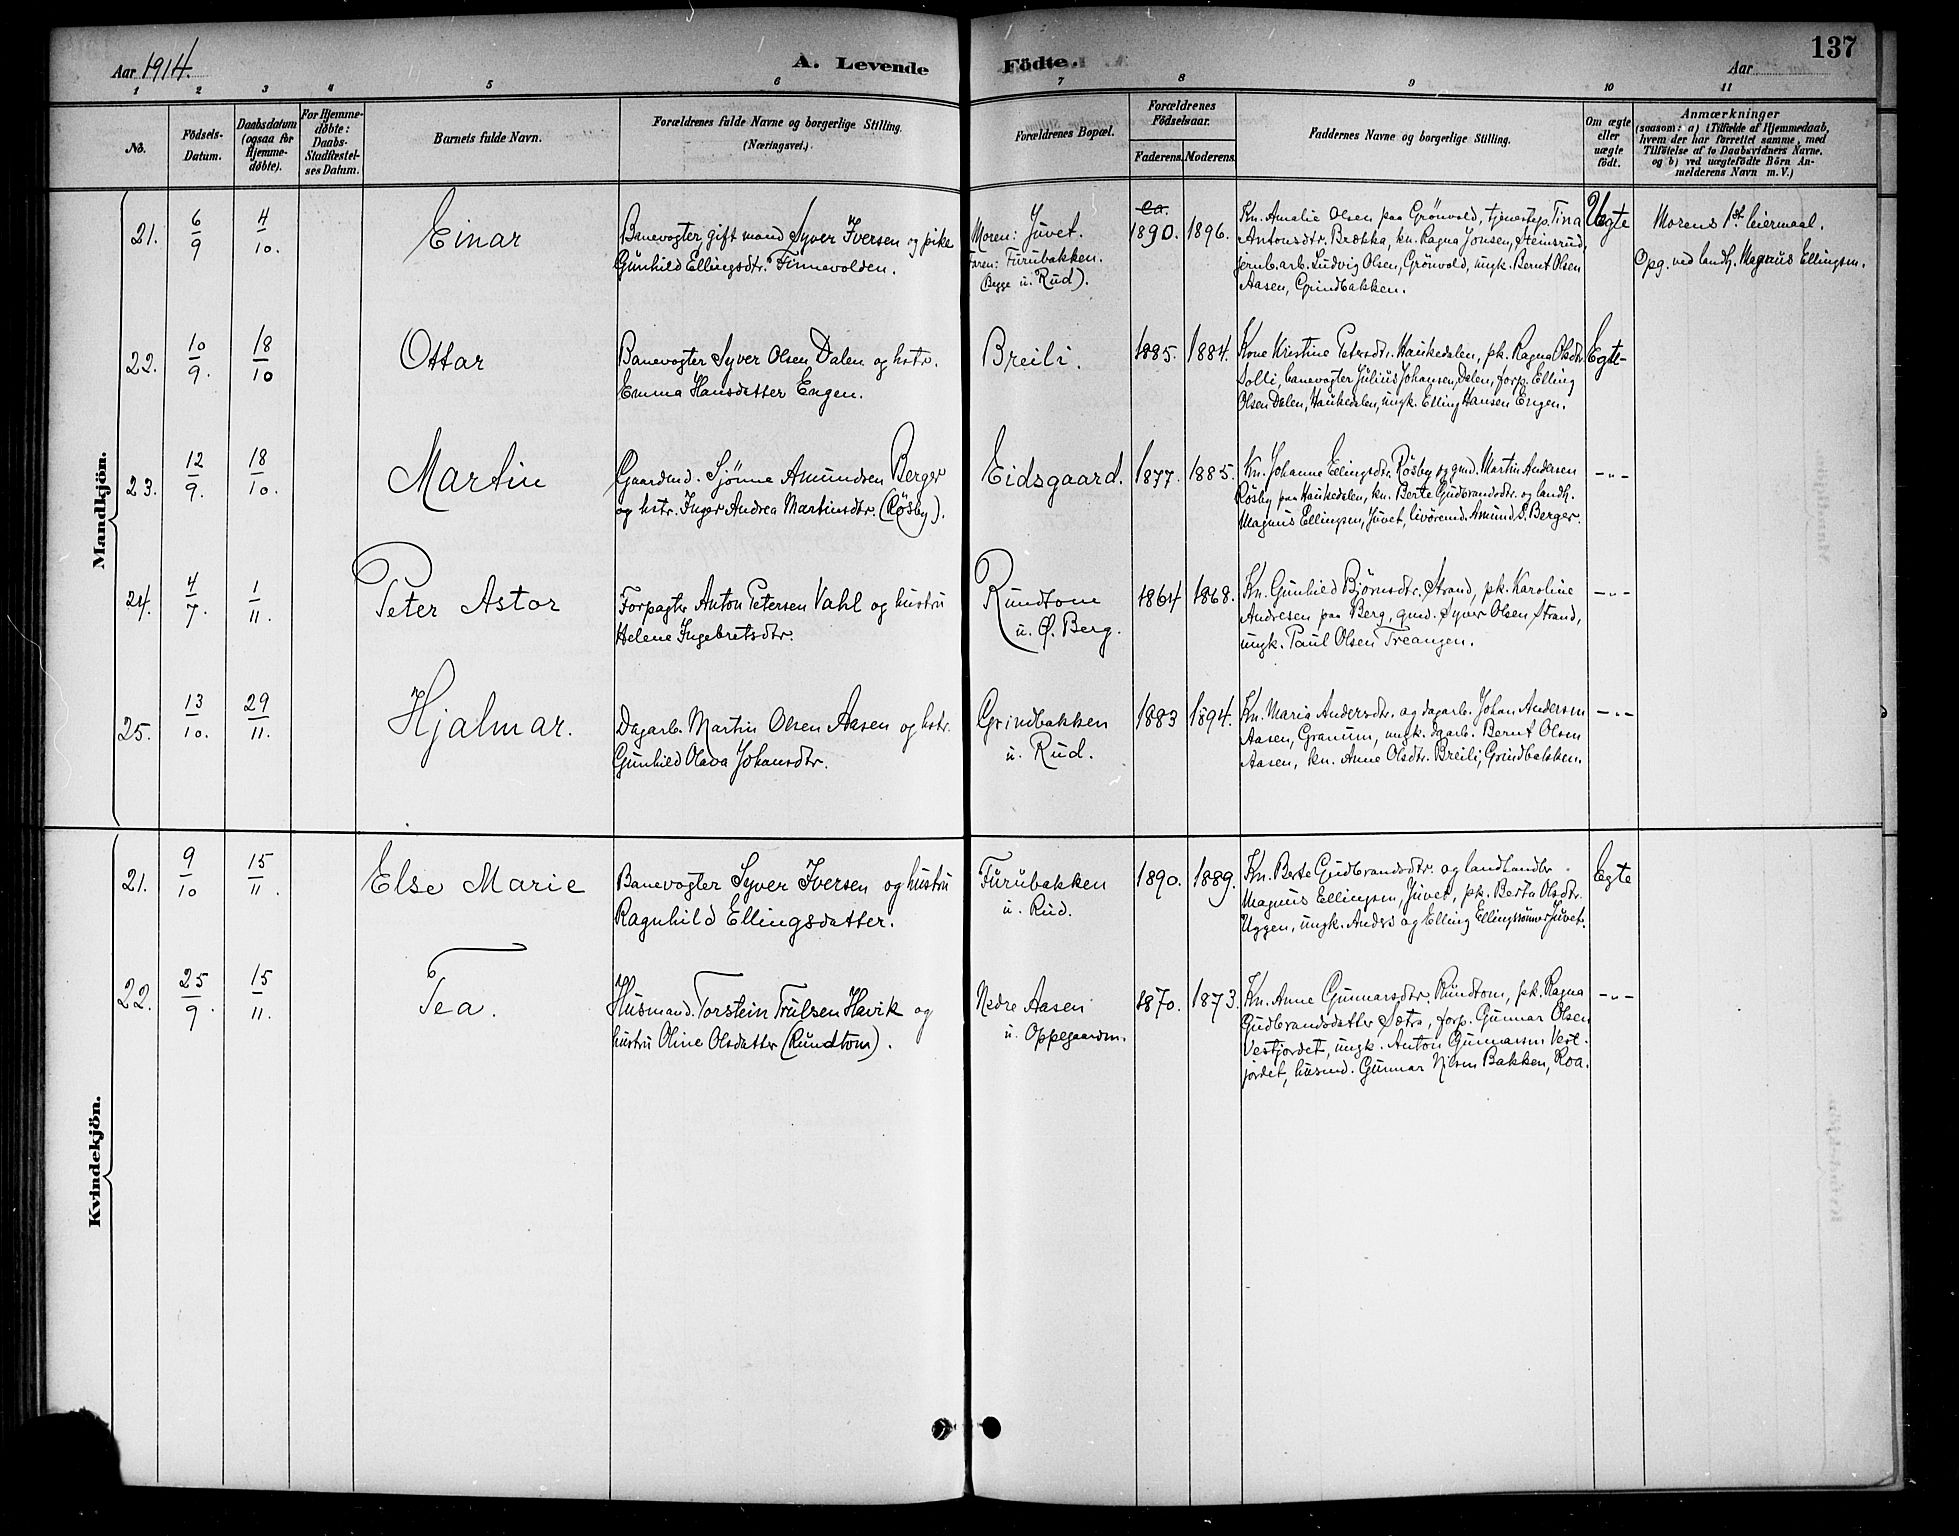 Aar 1914.
A. Levende Födte.
137
Aar
1 2 3 4 5 6 7 8 9 10 11
No.
Födsels-
Datum.
Daabsdatum
(ogsaa for
Hjemme-
döbte).
For Hjemme-
döbte:
Daabs-
Stadfæstel-
ses Datum.
Barnets fulde Navn.
Forældrenes fulde Navne og borgerlige Stilling.
(Næringsvei.)
Forældrenes Bopæl.
Forældrenes
Födselsaar.
Faderens. Moderens.
Faddernes Navne og borgerlige Stilling.
Om ægte
eller
uægte
födt.
Anmærkninger
(saasom: a) i Tilfælde af Hjemmedaab,
hvem der har forrettet samme, med
Tilföielse af to Daabsvidners Navne,
og b) ved uægtefödte Börn An-
melderens Navn m. V.)
Mandkjön.
21.
6/9
4/10.
Einar
Banevogter gift mand Syver Iversen og pike
Gunhild Ellingsdtr. Finnevolden.
Moren: Juvet.
Faren: Furubakken.
(Begge u. Rud).
ca.
1890.
1896.
Kn. Amalie Olsen paa Grönvold, tjenestep. Tina
Antonsdtr. Brækka, kn. Ragna Jonsen, Steinsrud,
jernb.arb. Ludvig Olsen, Grönvold, ungk. Bernt Olsen
Aasen, Grindbakken.
Uegte
Morens 1st leiermaal.
Opg. ved landh. Magnus Ellingsen.
22.
10/9.
18/10
Ottar
Banevogter Syver Olsen Dalen og hstr.
Emma Hansdatter Engen.
Breili.
1885.
1884.
Kone Kristine Petersdtr. Haukedalen, pk. Ragna Olsdtr.
Solli, banevogter Julius Johansen, Dalen, forp. Elling
Olsen Dalen, Haukedalen, ungk. Elling Hansen Engen.
Egte
23.
12/9.
18/10.
Martin
Gaardmd. Sjönne Amundsen Berger
og hstr. Inger Andrea Martinsdtr. (Rösby).
Eidsgaard.
1877.
1885.
Kn. Johanne Ellingsdtr. Rösby og gmd. Martin Andersen
Rösby paa Haukedalen, kn. Berte Gudbrandsdtr. og landh.
Magnus Ellingsen, Juvet, livöremd. Amund S. Berger.
-"-
24.
4/7.
1/11.
Peter Astor
Forpagter Anton Petersen Vahl og hustru
Helene Ingebretsdtr.
Rundtom
u. Ø. Berg.
1864
1868.
Kn. Gunhild Björnsdtr. Strand, pk. Karoline
Andresen paa Berg, gmd. Syver Olsen Strand,
ungk. Paul Olsen Treangen.
-"-
25.
13/10.
29/11.
Hjalmar.
Dagarb. Martin Olsen Aasen og hstr.
Gunhild Olava Johansdtr.
Grindbakken
u. Rud.
1883
1894.
Kn. Maria Andersdtr. og dagarb. Johan Andersen
Aasen, Granum, ungk. dgarb. Bernt Olsen
Aasen, kn. Anne Olsdtr. Breili, Grindbakken.
-"-
Kvindekjön.
21.
9/10
15/11.
Else Marie
Banevogter Syver Iversen og hustru
Ragnhild Ellingsdatter.
Furubakken
u. Rud.
1890.
1889.
Kn. Berte Gudbrandsdtr. og landhandler
Magnus Ellingsen, Juvet, pk. Berta Olsdtr.
Uggen, ungk. Anders og Elling Ellingssønner Juvet.
Egte
22.
25/9.
15/11.
Tea.
Husmand. Torstein Trulsen Havik og
hustru Oline Olsdatter (Rundtom).
Nedre Aasen
u. Oppegaarden.
1870.
1873.
Kn. Anne Gunnarsdtr. Rundtom, pk. Ragna
Gudbrandsdatter Sætra, forp. Gunnar Olsen
Vestjordet, ungk. Anton Gunnarsen Vest-
jordet, husmd. Gunnar Nilsen Bakken, Roa.
-"-